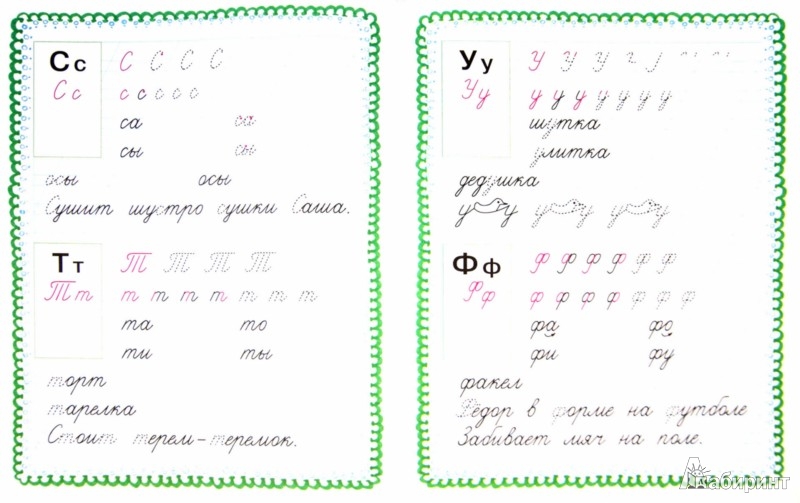 Сс С С С С
Сс с с с с с
са са
сы сы
осы осы
Сушит шустро сушки Саша.
Тт Т Т Т Т
Тт т т т т т т т
та то
ти ты
торт
тарелка
Стоит терем-теремок.
Уу У У У
Уу у у у у у у у
шутка
улитка
дедушка
у у у у у у
Фф Ф Ф Ф Ф Ф Ф
Фф ф ф ф ф ф ф ф
фа фо
фи фу
факел
Фёдор в форме на футболе
Забивает мяч на поле.
Лабиринт